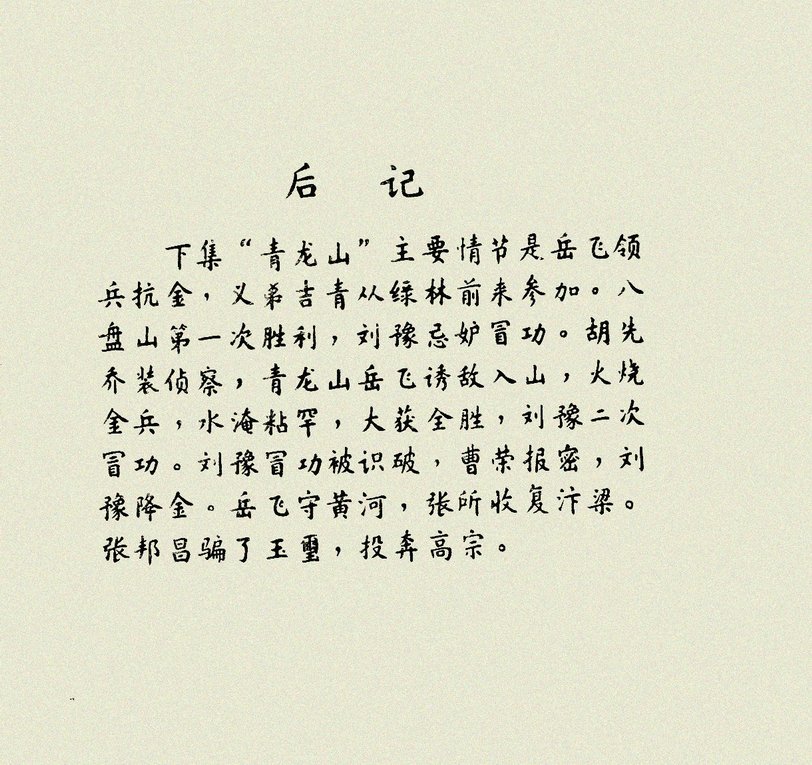 后 记
下集“青龙山”主要情节是岳飞领
兵抗金，义弟吉青从绿林前来参加。八
盘山第一次胜利，刘豫忌妒冒功。胡先
乔装侦察，青龙山岳飞诱敌入山，火烧
金兵，水淹粘罕，大获全胜，刘豫二次
冒功。刘豫冒功被识破，曹荣报密，刘
豫降金。岳飞守黄河，张所收复汴梁。
张邦昌骗了玉玺，投奔高宗。